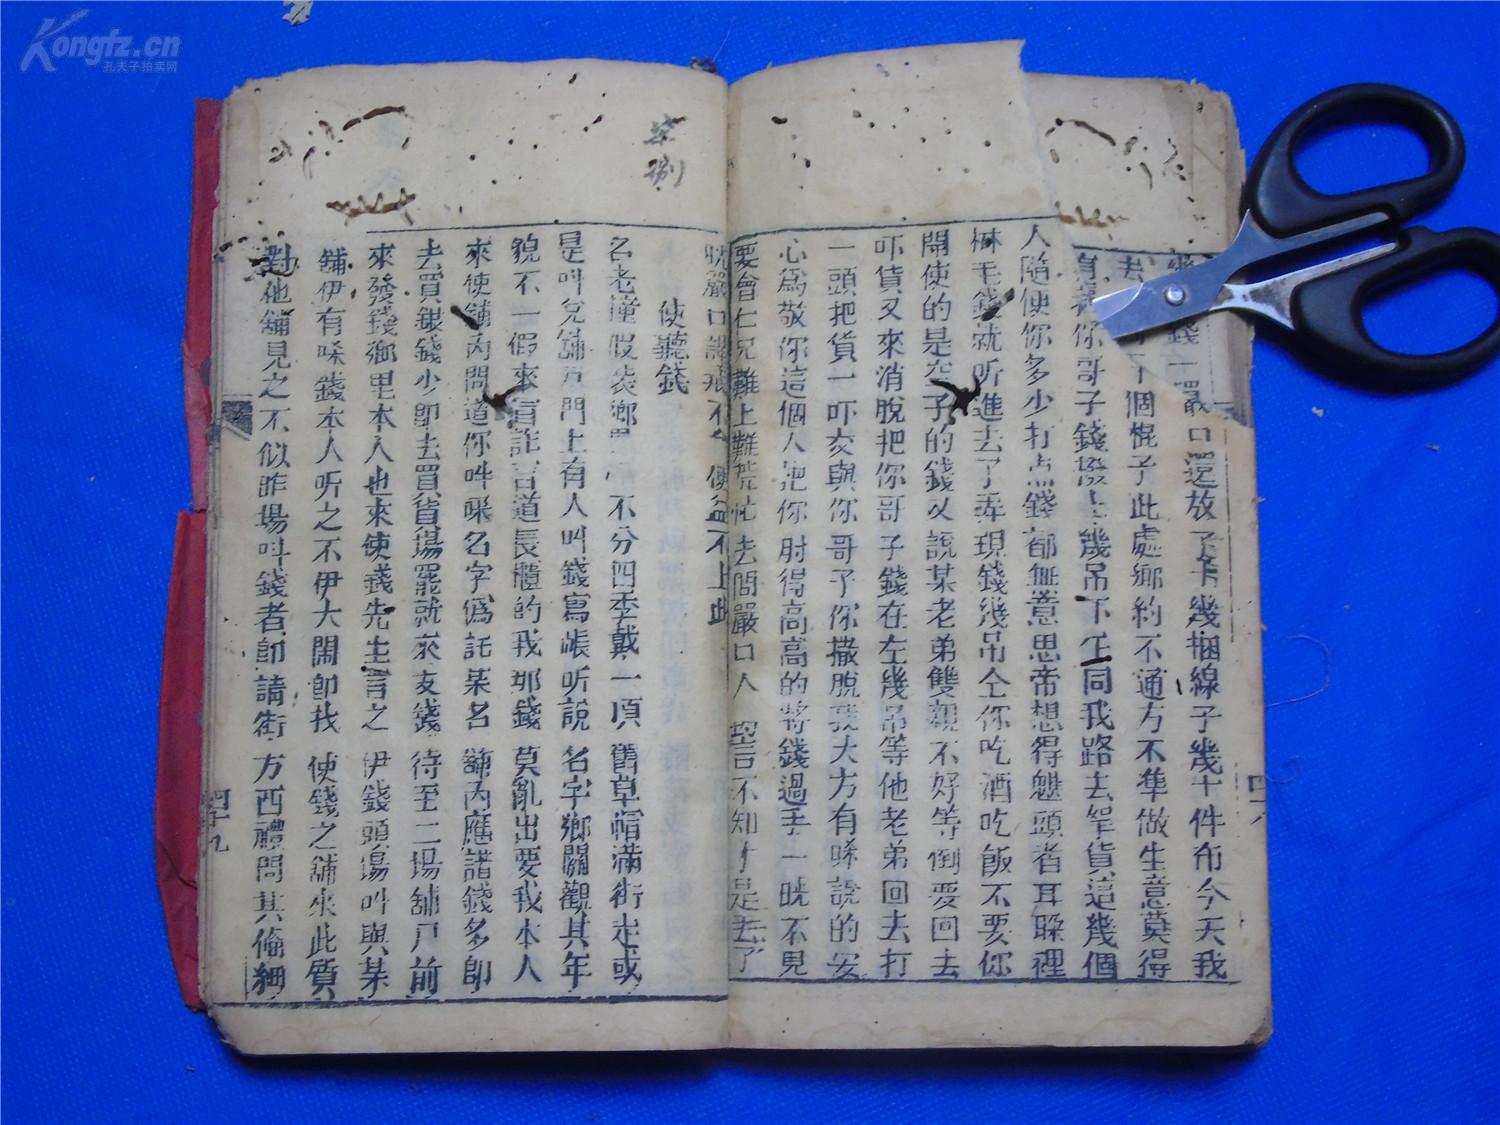 Kongfz.cn
孔夫子拍卖网
錢一還口還放了卡幾捆線子幾十件布今天我
去個棍子此處鄉約不通方不準做生意莫得
你哥子錢幾吊不生同我路去罕貨這幾個
人隨使你多少打点錢都無意思帝想得魁頭者耳躲裡
麻毛錢就听進去了弄現錢幾吊仝你吃酒吃飯不要你
開使的是空子的錢又說某老弟雙親不好等倒要回去
吓貨又來消脫把你哥子錢在左幾吊等他老弟回去打
一頭把貨一吓交與你哥子你撒脫我大方有唏說的安
心為敬你這個人把你肘得高高的將錢過手一晄不見
要會仁兄難上難荒忙去問嚴口人望言不知才是去了
晄嚴口誤賬不便益不上此
柒捌
使聽錢
名老撞假裝鄉不分四季戴一頂舊草帽滿街走或
是叫兌舖方門上有人叫錢寫賬听說名字鄉關觀其年
貌不一假來盲詐言道長櫃的我那錢莫亂出要我本人
來使舖內問道你吽唻名字偽託某名舖內應諸錢多即
去買銀錢少即去買貨場罷就來支錢待至二場舖戸前
來發錢鄉里本人也來使錢先生言之伊錢頭場叫與某
舖伊有唻錢本人听之不伊大閙即找使錢之舖來此質
對他舖見之不似昨場吽錢者即請街方西禮問其備細
四十九